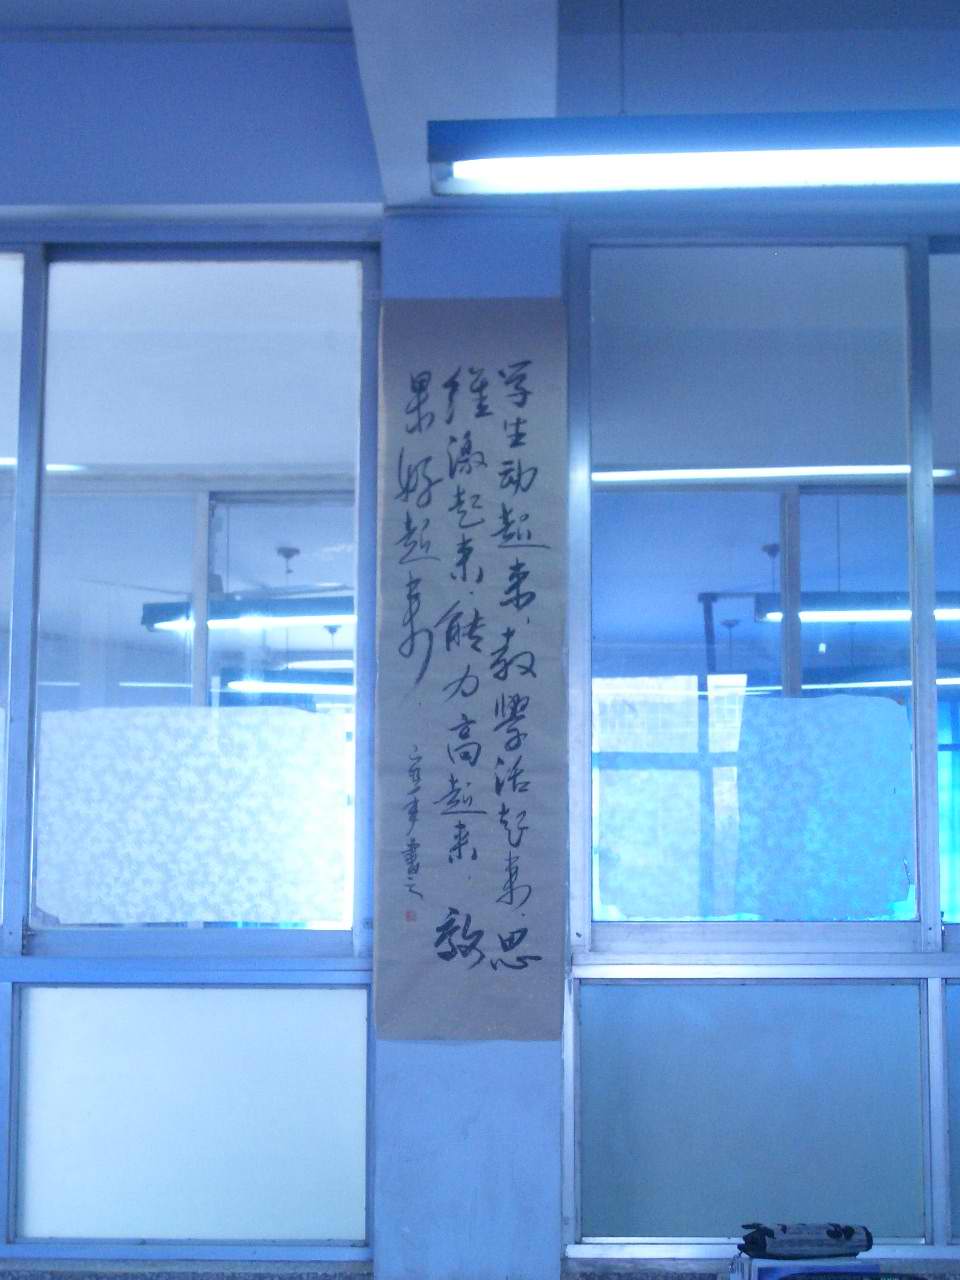 学生动起来，教學活起来，思
維激起来，能力高起来，效
果好起来
書之